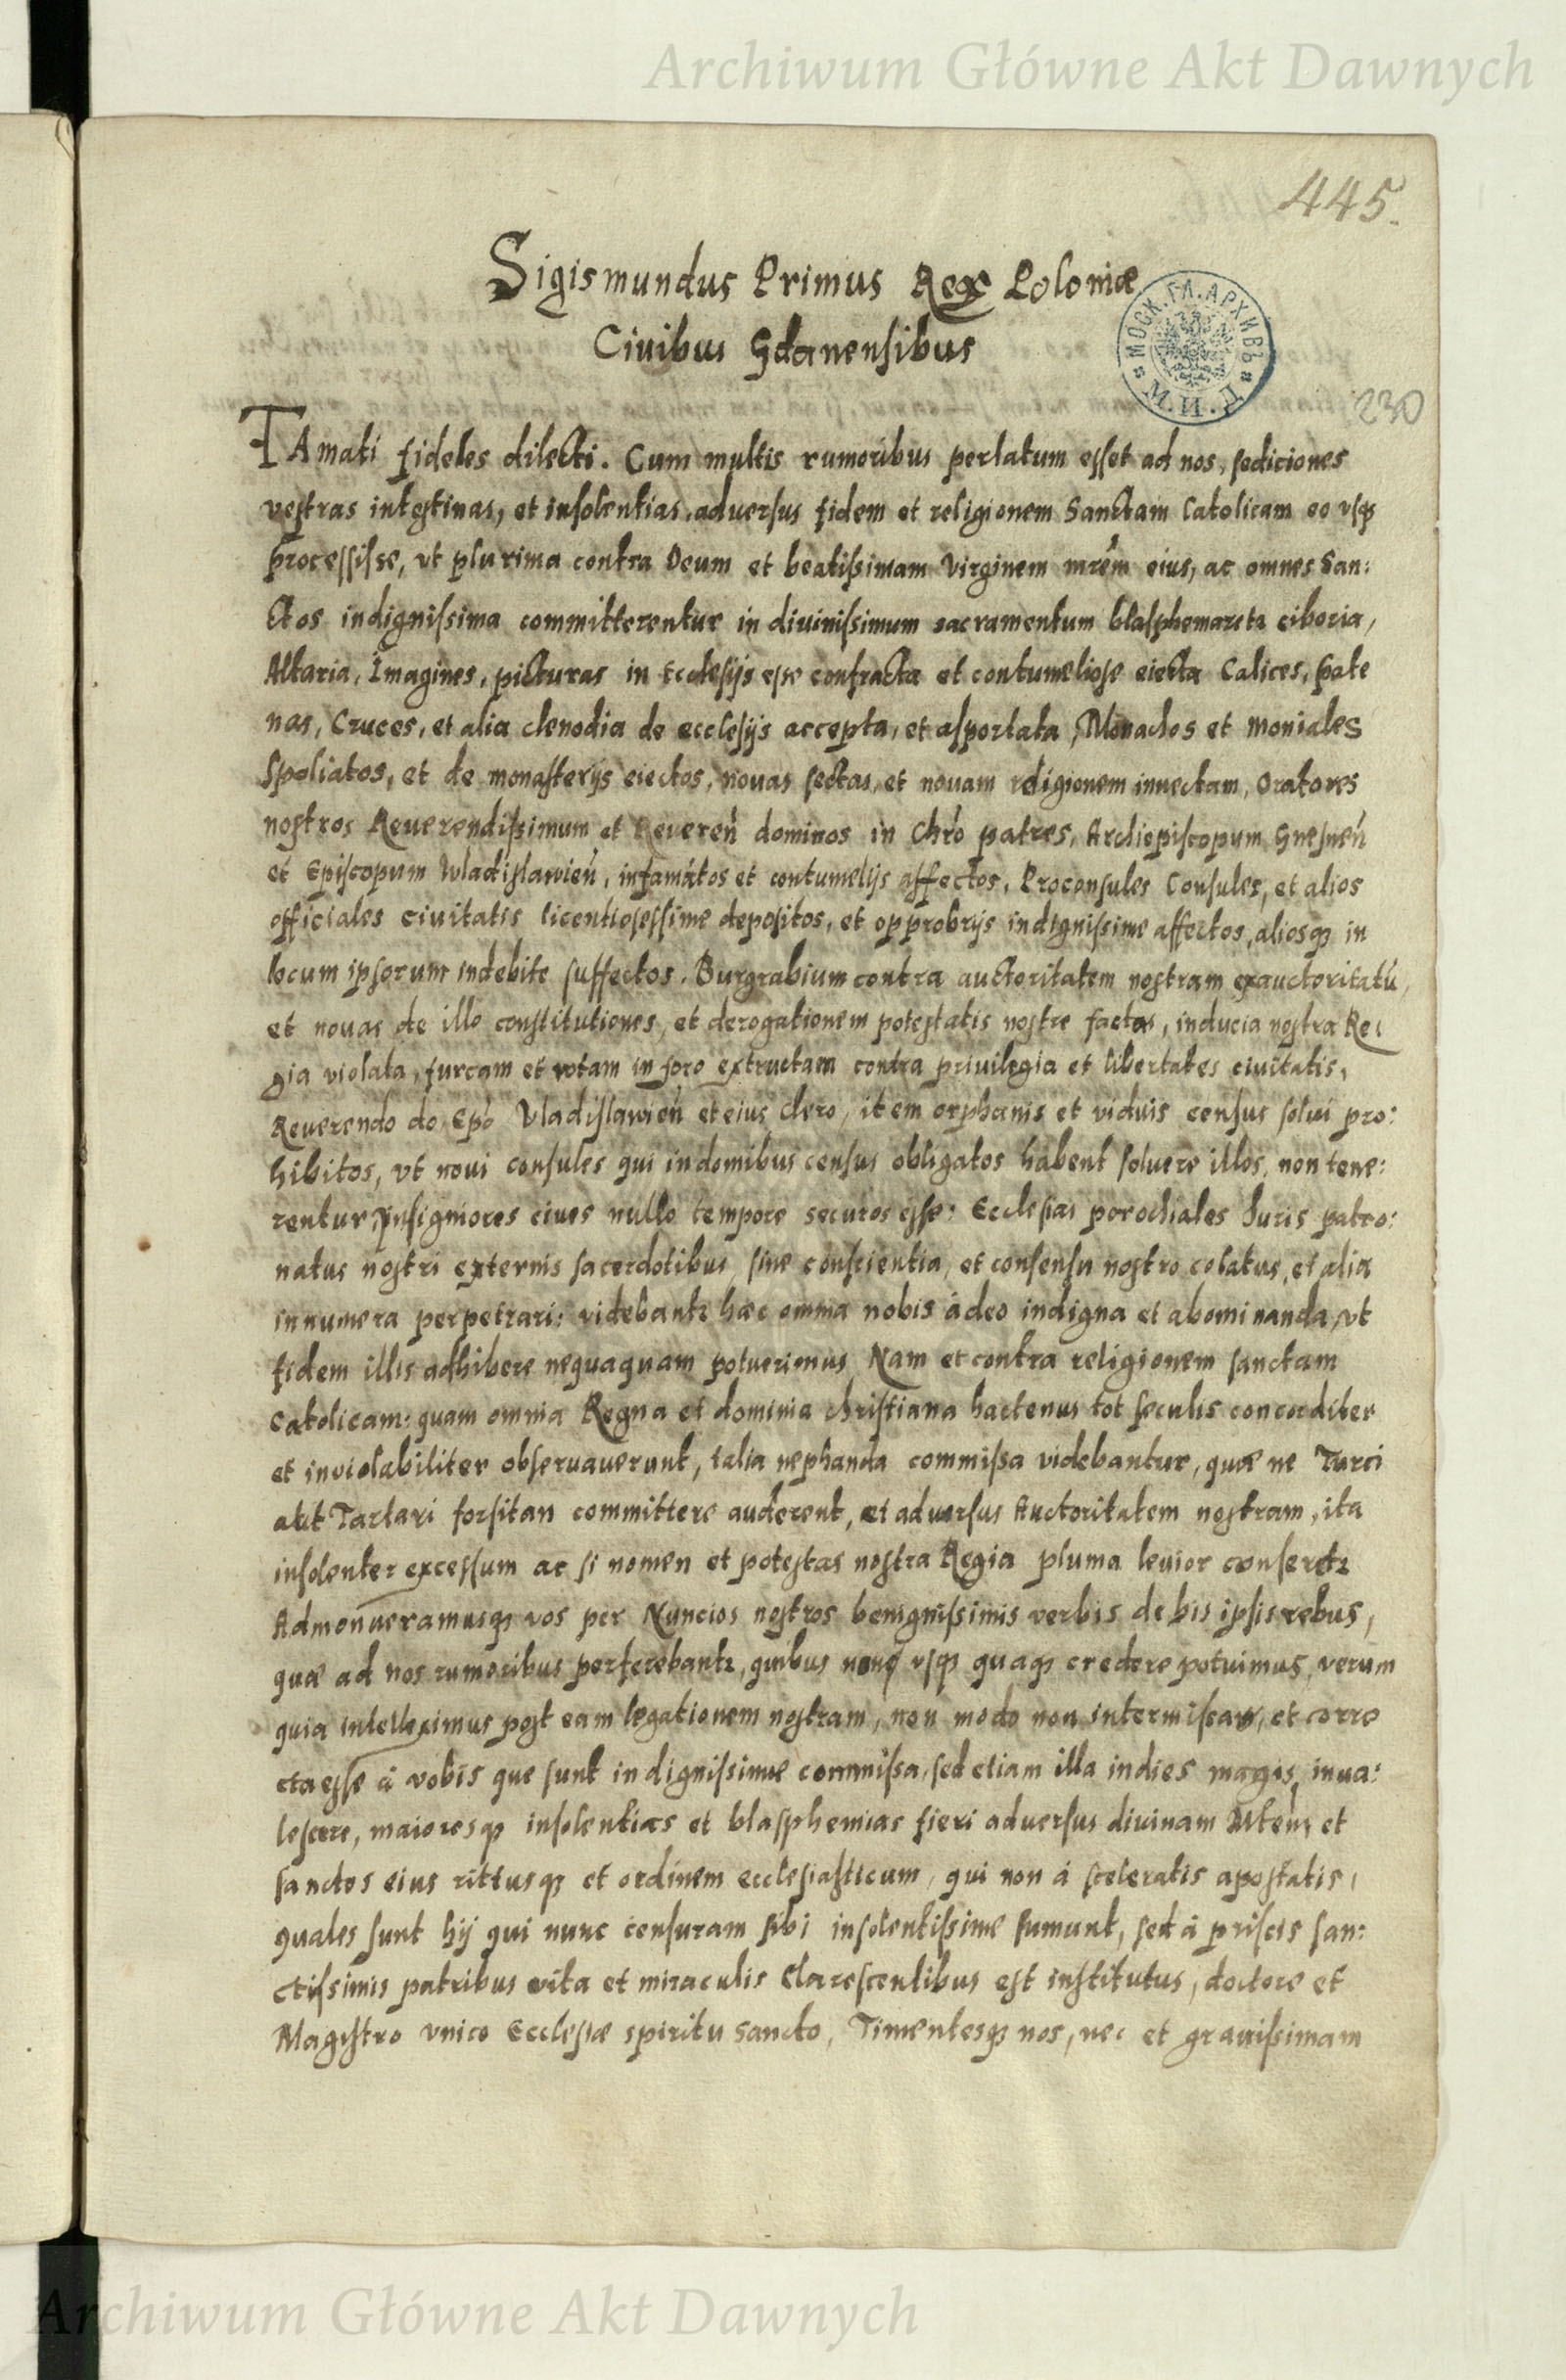 Archiwum Główne Akt Dawnych
445.
Sigismundus Primus Rex Poloniæ
Ciuibus Gdanensibus
МОСК. ГЛ. АРХИВЪ
М. И. Д.
230
FAmati fideles dilecti. Cum multis rumoribus perlatum esset ad nos, sediciones
vestras intestinas, et insolentias, aduersus fidem et religionem Sanctam Catolicam eo vsq3
processisse, vt plurima contra Deum et beatissimam Virginem mrẽm eius, ac omnes San:
ctos indignissima committerentur in diuinissimum sacramentum blasphemaretr ciboria,
Altaria, Imagines, picturas in Ecclesijs esse confracta et contumeliose eiecta Calices, pate
nas, Cruces, et alia clenodia de ecclesijs accepta, et asportata, Monachos et moniales
Spoliatos, et de monasterijs eiectos, nouas sectas, et nouam religionem inuectam, Oratores
nostros Reuerendissimum et Reuereń dominos in Chrõ patres, Archiepiscopum Gnesneń
et Episcopum Wladislawień, infamátos et contumelijs affectos, Proconsules Consules, et alios
officiales ciuitatis licentiosessime depositos, et opprobrijs indignissime affectos, aliosq3 in
locum ipsorum indebite suffectos. Burgrabium contra auctoritatem nostram exauctoritatũ,
et nouas de illo constitutiones, et derogationem potestatis nostre factas, inducia nostra Re:
gia violata, furcam et rotam in foro extructam contra priuilegia et libertates ciuitatis,
Reuerendo do Epõ Vladislawień et eius clero, item orphanis et viduis census solui pro:
hibitos, vt noui consules qui in domibus census obligatos habent soluere illos, non tene:
rentur, insigniores ciues nullo tempore securos esse: Ecclesias parochiales Juris patro:
natus nostri externis sacerdotibus, sine conscientia, et consensu nostro colatus, et alia
innumera perpetrari: videbantr hæc omnia nobis ádeo indigna et abominanda, vt
fidem illis adhibere nequaquam potuerimus, Nam et contra religionem sanctam
Catolicam: quam omnia Regna et dominia christiana hactenus tot seculis concorditer
et inviolabiliter obseruauerunt, talia nephanda commissa videbantur, quæ ne Turci
aut Tartari forsitan committere auderent, et aduersus Auctoritatem nostram, ita
insolenter excessum ac si nomen et potestas nostra Regia pluma leuior censeretr
Admonueramusq3 vos per Nuncios nostros benignissimis verbis de his ipsis rebus,
quæ ad nos rumoribus perferebantr, quibus vsq3 quaq3 credere potuimus, verum
quia intelleximus post eam legationem nostram, non modo non intermissa, et corre
cta esse á vobis que sunt indignissime commissa, sed etiam illa indies magis, inua:
lescere, maioresq3 insolentias et blasphemias fieri aduersus diuinam Mtem, et
sanctos eius rittusq3 et ordinem ecclesiasticum, qui non á sceleratis apostatis,
quales sunt hij qui nunc censuram sibi insolentissime sumunt, sed á priscis san:
ctissimis patribus vita et miraculis clarescentibus est institutus, doctore et
Magistro vnico Ecclesiæ spiritu Sancto, Timentesq3 nos, nec et grauissimam
Archiwum Główne Akt Dawnych